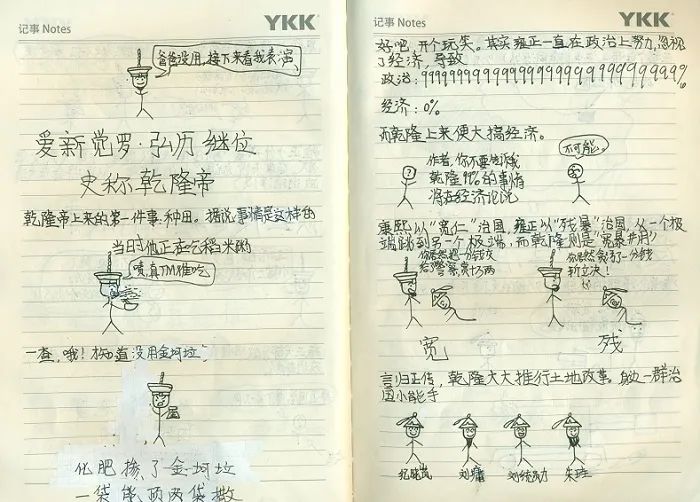 记事 Notes
YKK
爸爸没用,接下来看我表演
爱新觉罗·弘历 继位
史称乾隆帝
乾隆帝上来的第一件事.种田。据说事情是这样的
当日他正在吃稻米粥
嘖,真TM难吃
一查,哦!才知道没用金坷垃,
化肥掺了金坷垃
一袋能顶两袋撒
记事 Notes
YKK
好吧,开个玩笑。其实雍正一直在政治上努力,忽视
了经济,导致
政治:99999999999999999999999999999%
经济:0%
而乾隆上来便大搞经济。
作者,你不要告诉我
乾隆99%的事情
将在经济论说
不可能。
康熙以“宽仁”治国,雍正以“残暴”治国,从一个极
端跳到另一个极端,而乾隆则是“宽暴并用”
给警察
万两
斩立决!
宽
残
言归正传,乾隆大大推行土地改革。身边一群治
国小能手
纪晓岚
刘墉
刘统勋
朱珪